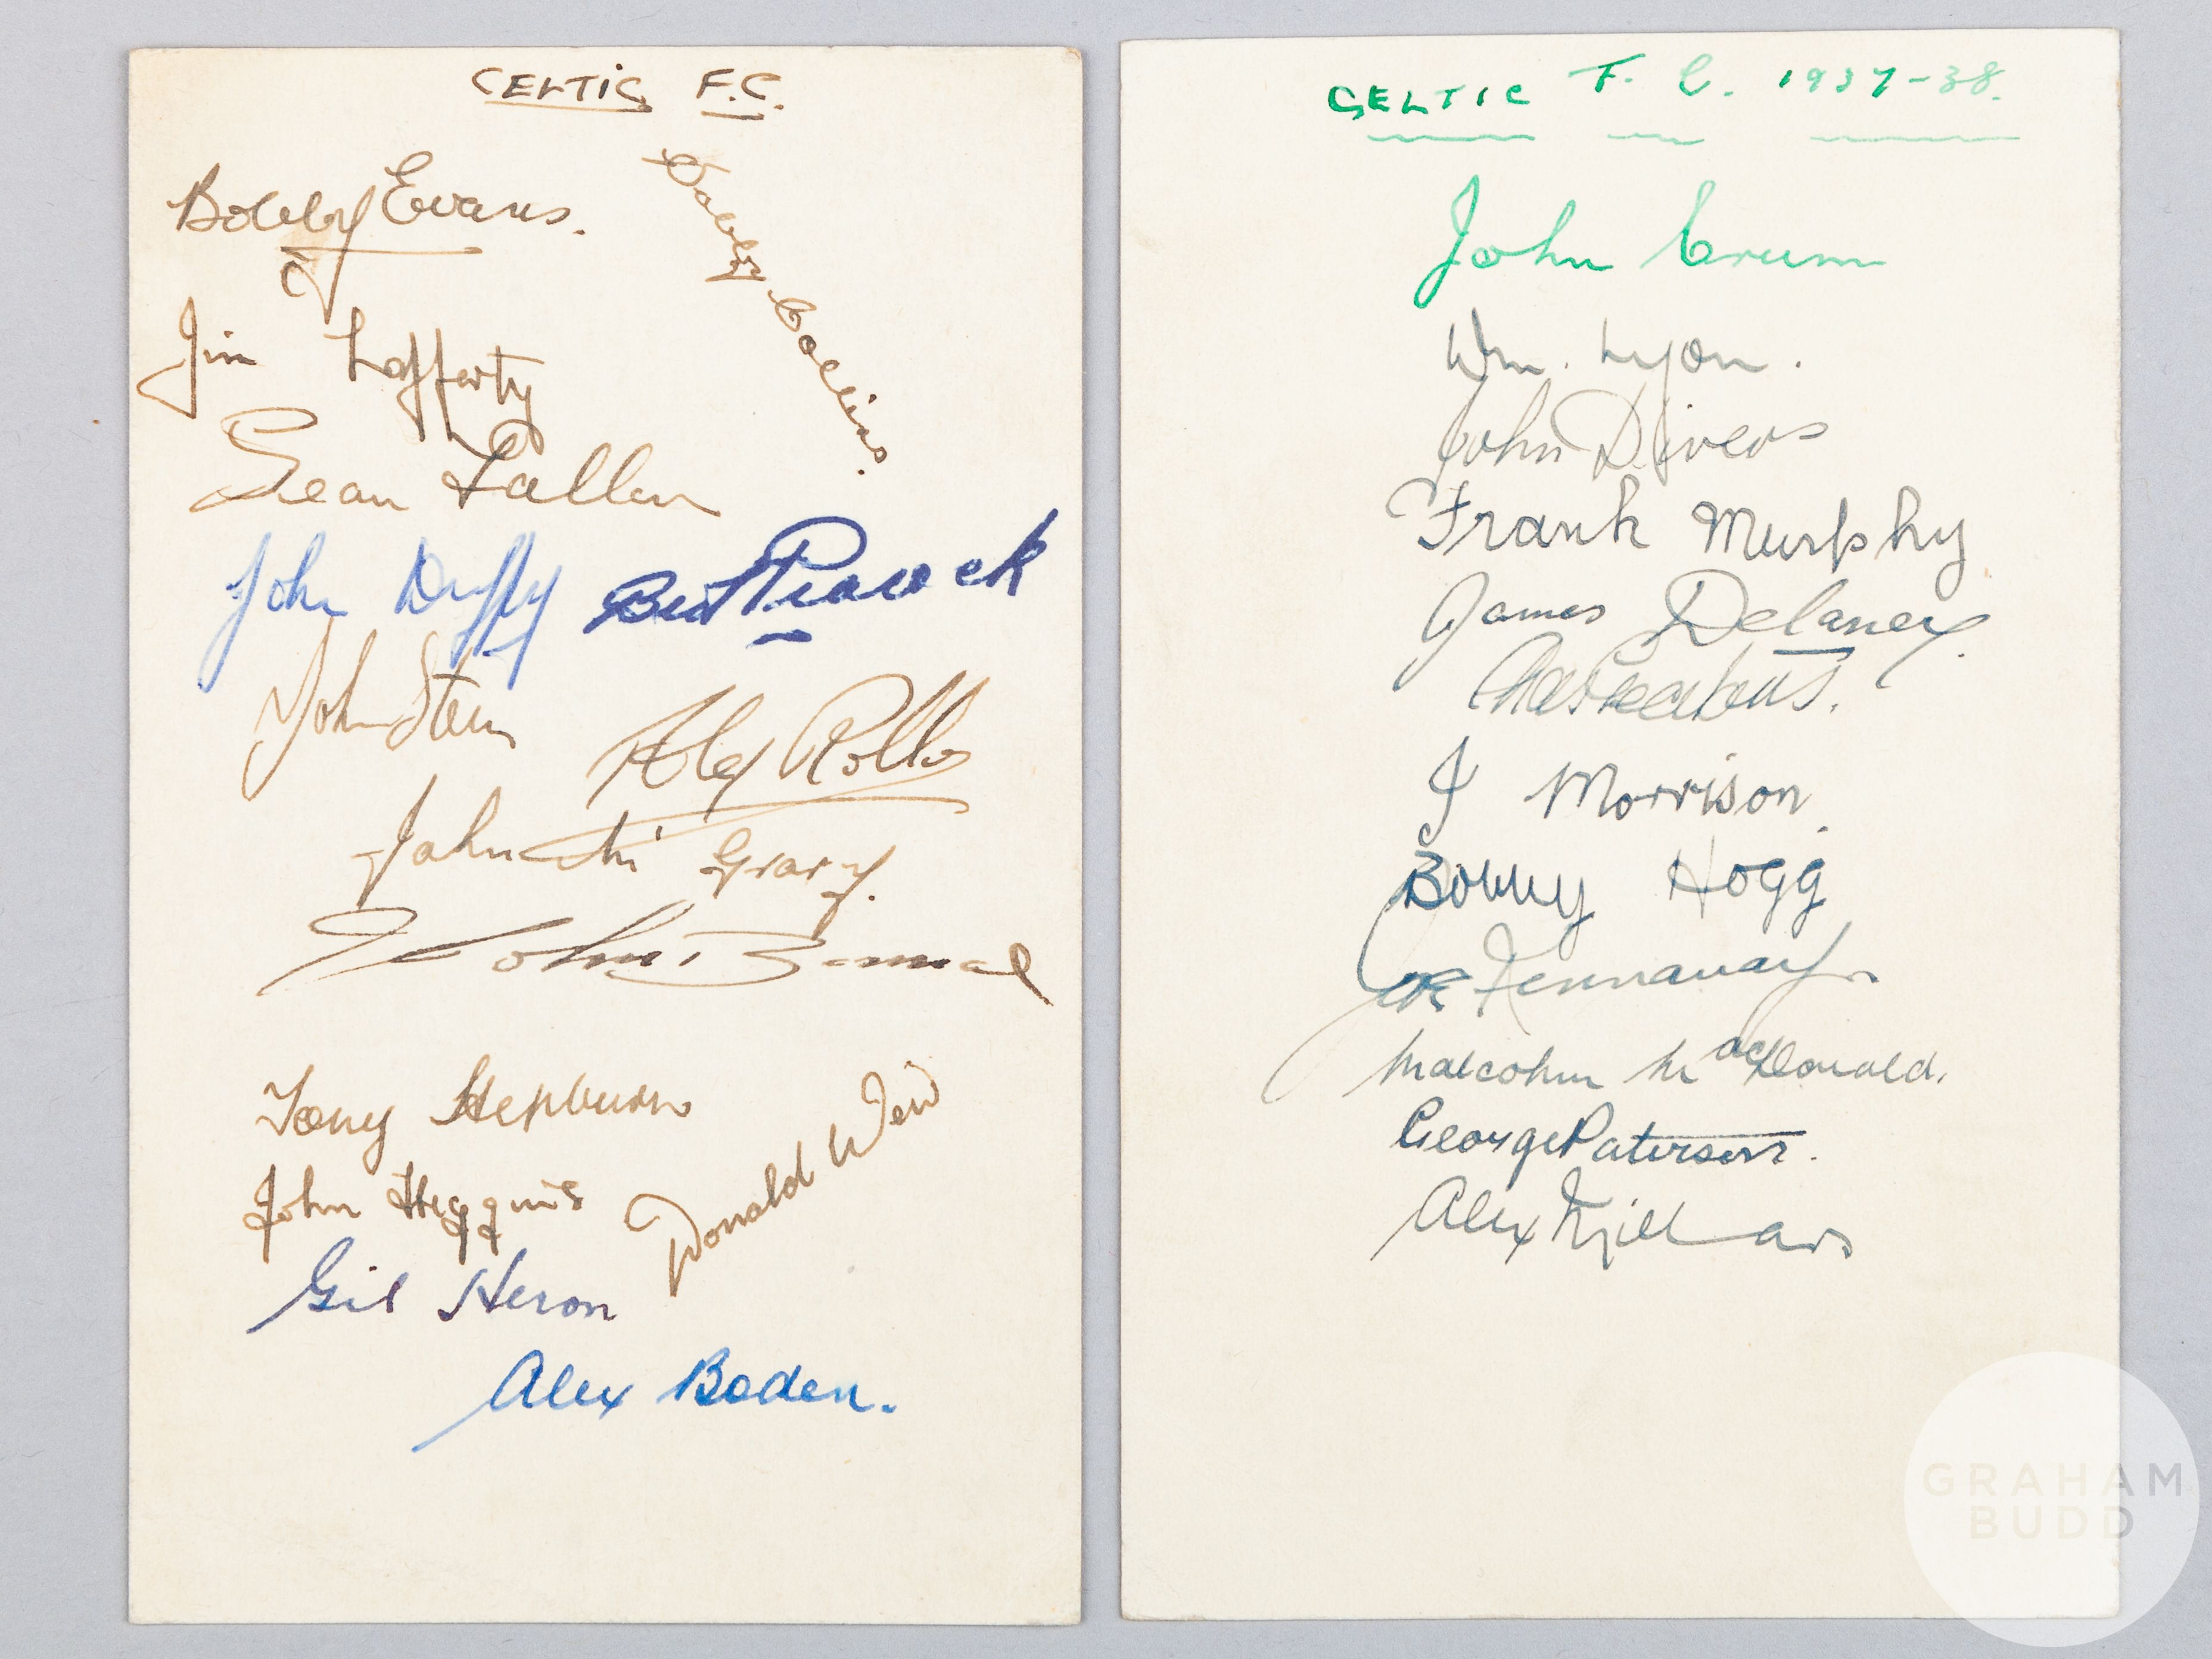 CELTIC F.C.
Bobby Evans.
Bobby Collins.
Jim Lafferty
Sean Fallon
John Duffy
Bert Peacock
John Stein
Alex Rollo
John Mc Grory.
John Bonnar
Tony Hepburn
John Higgins
Donald Weir
Gil Heron
Alex Boden.
CELTIC F. C. 1937-38.
John Crum
Wm. Lyon.
John Divers
Frank Murphy
James Delaney.
Chas Geatons.
J Morrison.
Bobby Hogg
Joe Kennaway.
Malcolm MacDonald.
George Paterson.
Alex Millar
GRAHAM
BUDD